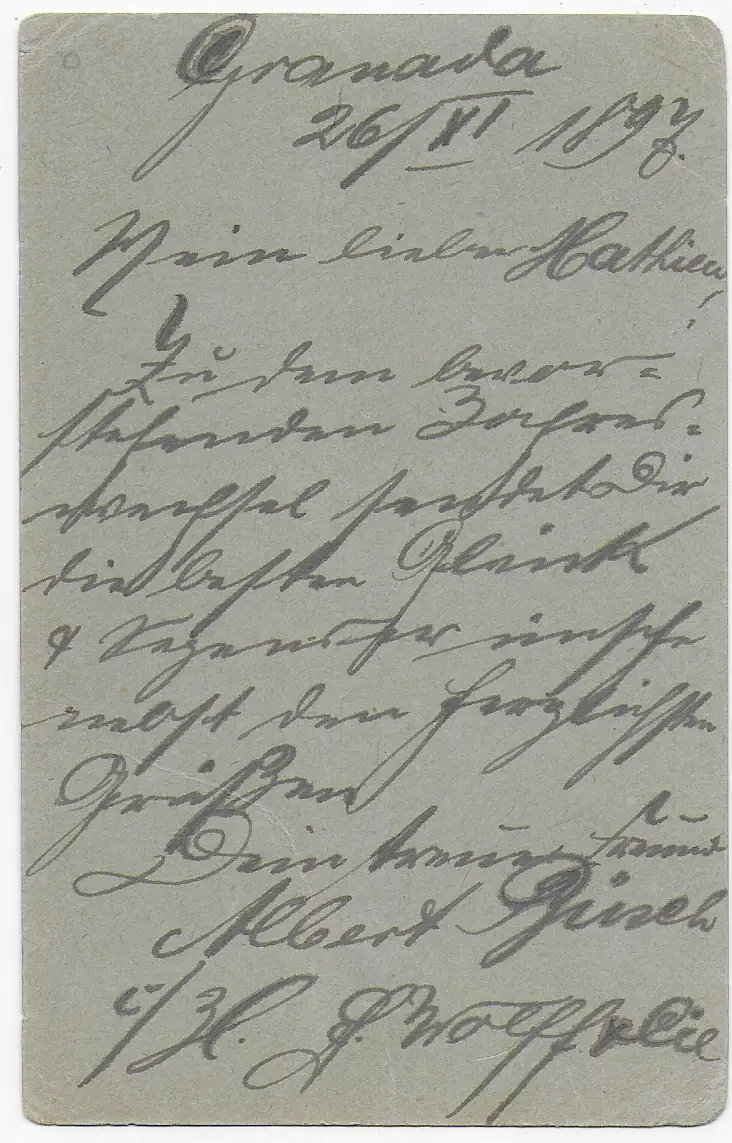 Granada
26/XI 1897.
Mein lieber Mathieu!
Zu dem bevor=
stehenden Jahres=
wechsel sendet Dir
die besten Glück
& Segenswünsche
nebst den herzlichsten
Grüßen
Dein treuer Freund
Albert
c/ H. J. Wolff & Cie